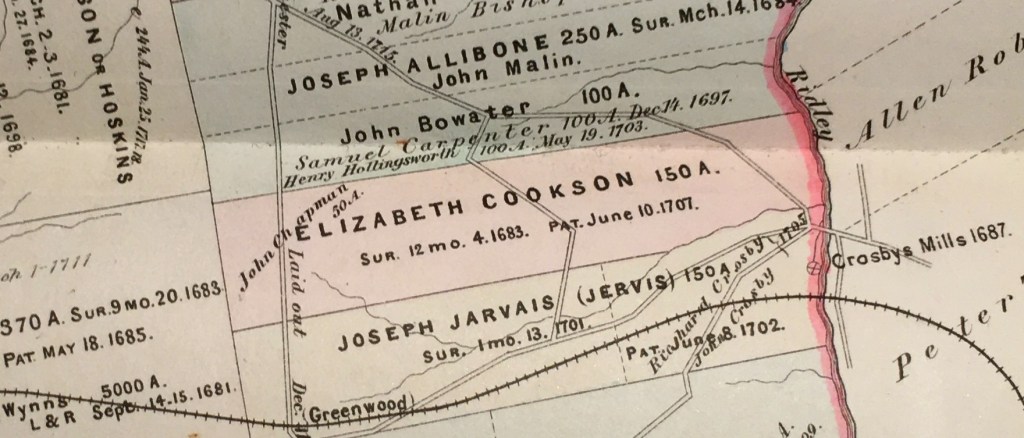 Nathan
Malin Bishop
Aug 13. 1715.
JOSEPH ALLIBONE 250 A. SUR. Mch. 14. 1684
John Malin.
John Bowater 100 A.
Samuel Carpenter 100. A. Dec 14. 1697.
Henry Hollingsworth 100. A. May 19. 1703.
ELIZABETH COOKSON 150 A.
SUR. 12 mo. 4. 1683. PAT. June 10. 1707.
John Chapman
50. A.
JOSEPH JARVAIS (JERVIS) 150 A
SUR. 1 mo. 13. 1701.
PAT. June 8. 1702.
Richard Crosby 1705
John Crosby
Laid out Dec.
(Greenwood)
Ridley
Crosbys Mills 1687.
Allen Rob
Peter
2. 3. 1681.
27. 1684.
SON OR HOSKINS
1698.
370 A. SUR. 9 MO. 20. 1683
PAT. MAY 18. 1685.
5000 A.
Wynns L & R Sept. 14.15. 1681.